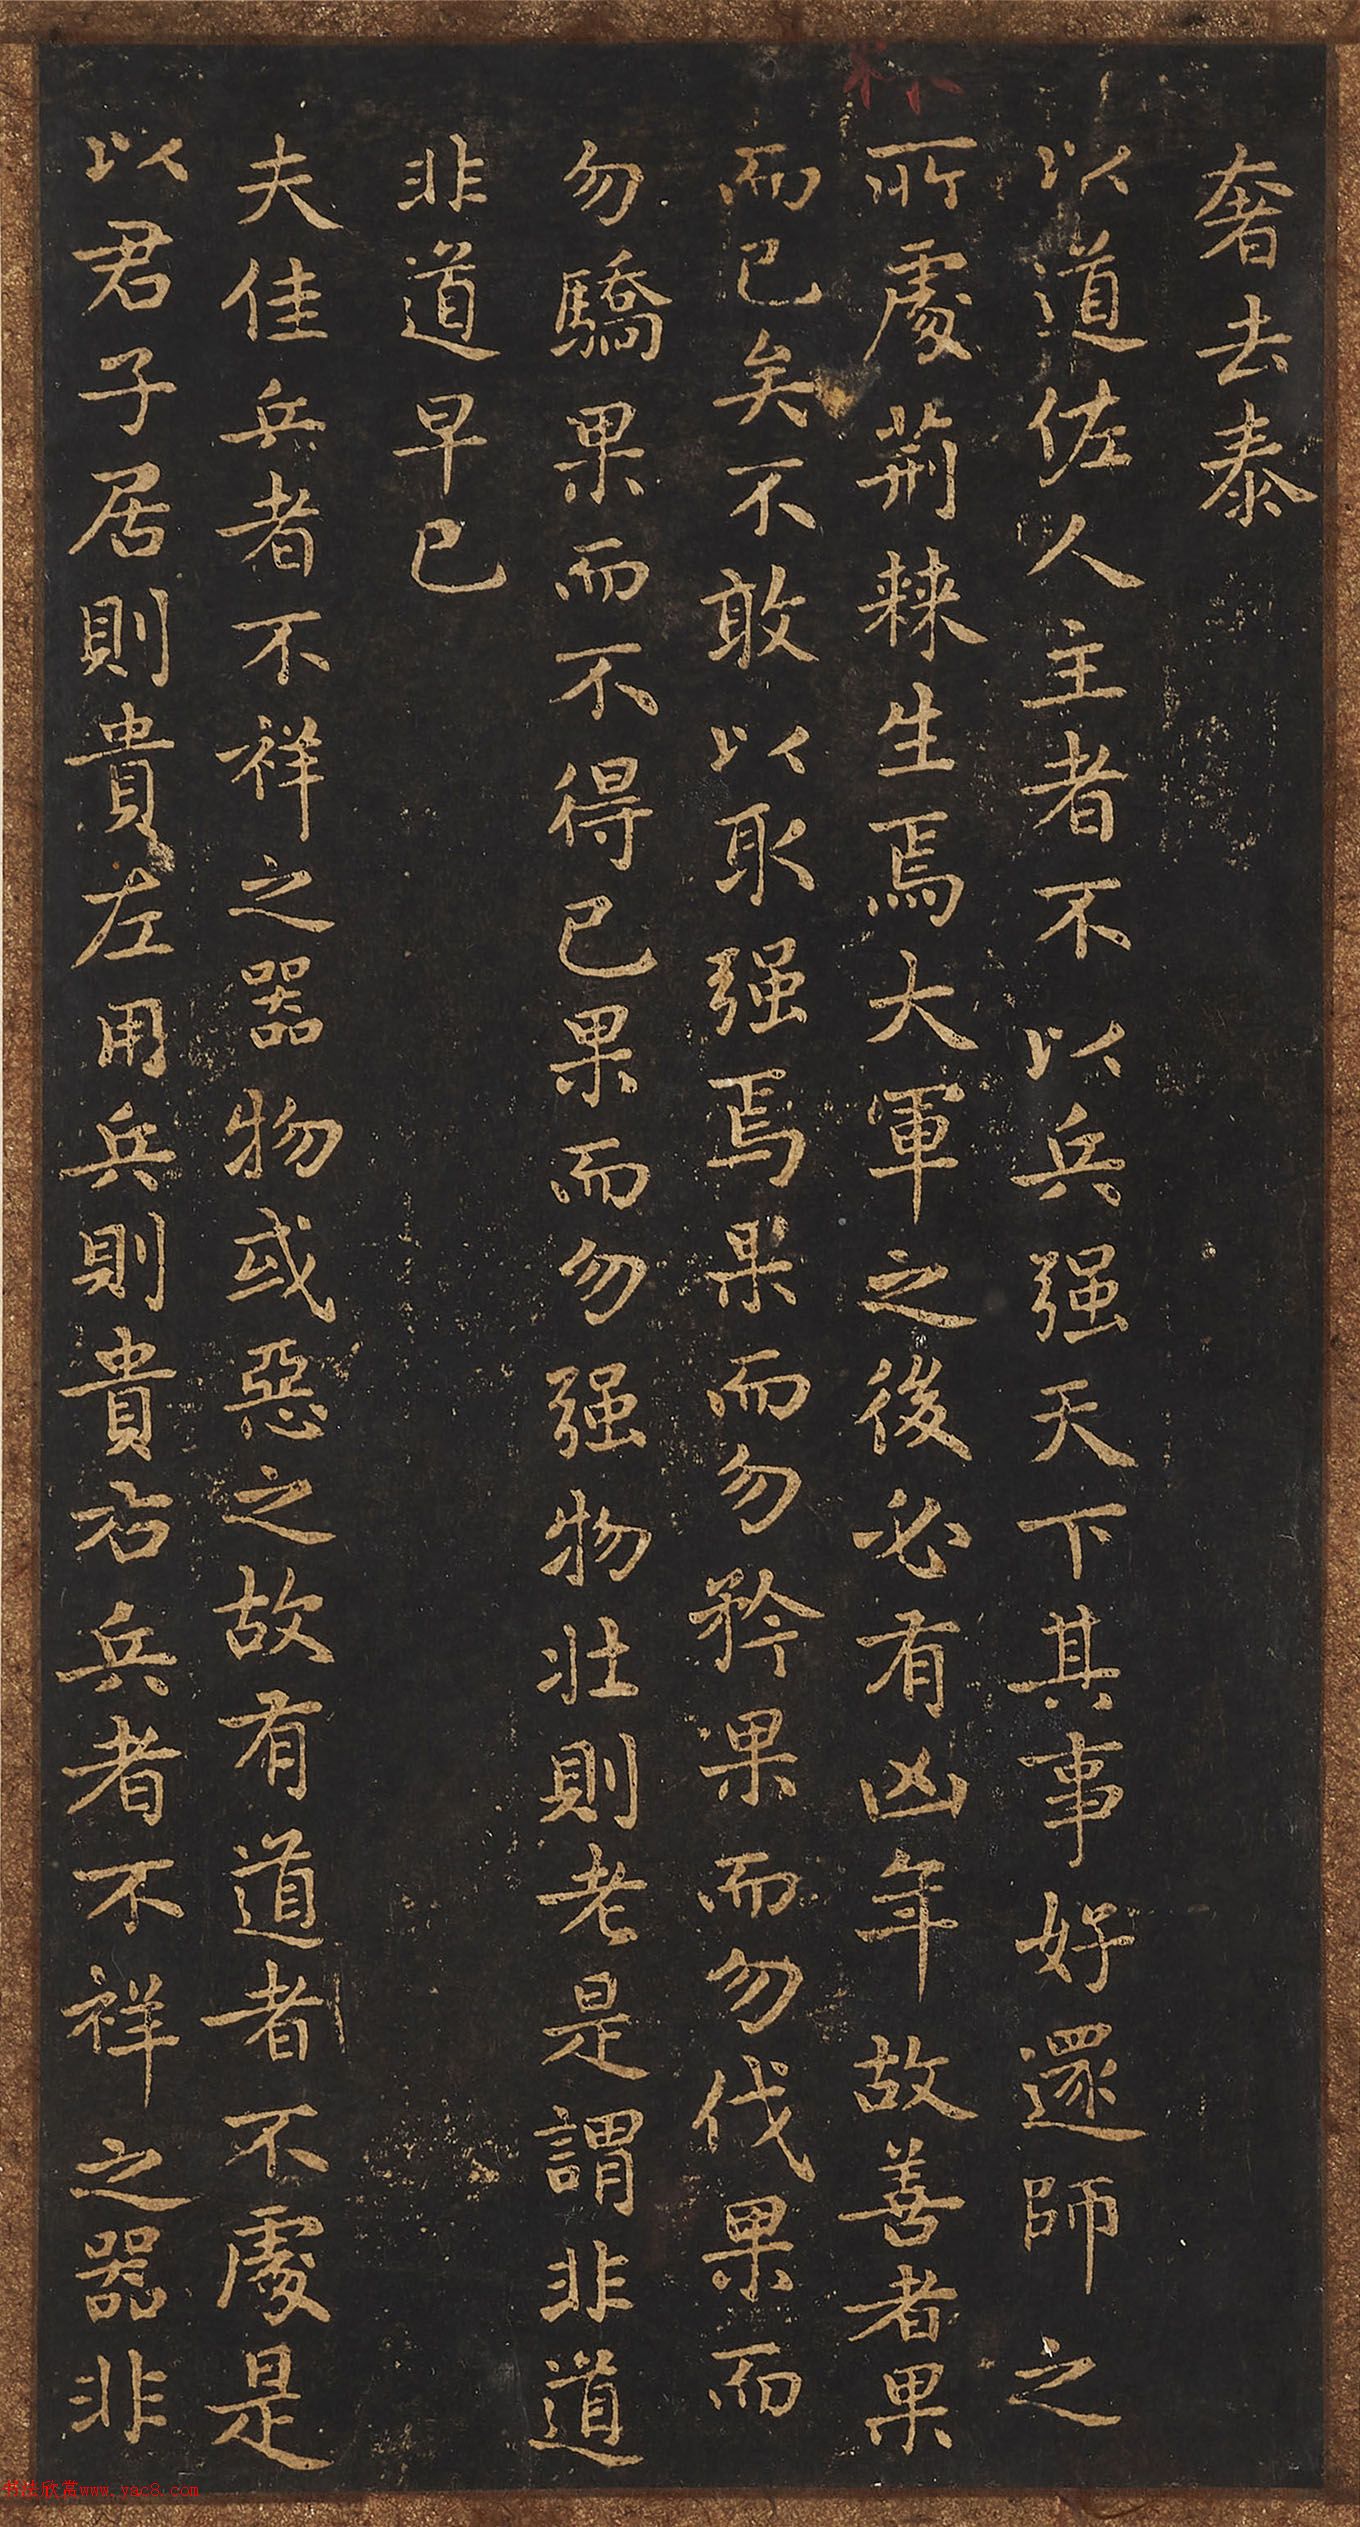 奢去泰
以道佐人主者不以兵强天下其事好還師之
所處荊棘生焉大軍之後必有凶年故善者果
而已矣不敢以取强焉果而勿矜果而勿伐果而
勿驕果而不得已果而勿强物壯則老是謂非道
非道早已
夫佳兵者不祥之器物或惡之故有道者不處是
以君子居則貴左用兵則貴右兵者不祥之器非
书法欣赏www.yac8.com